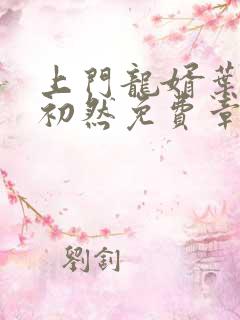 上門龍婿葉
初然免費章
劉釗